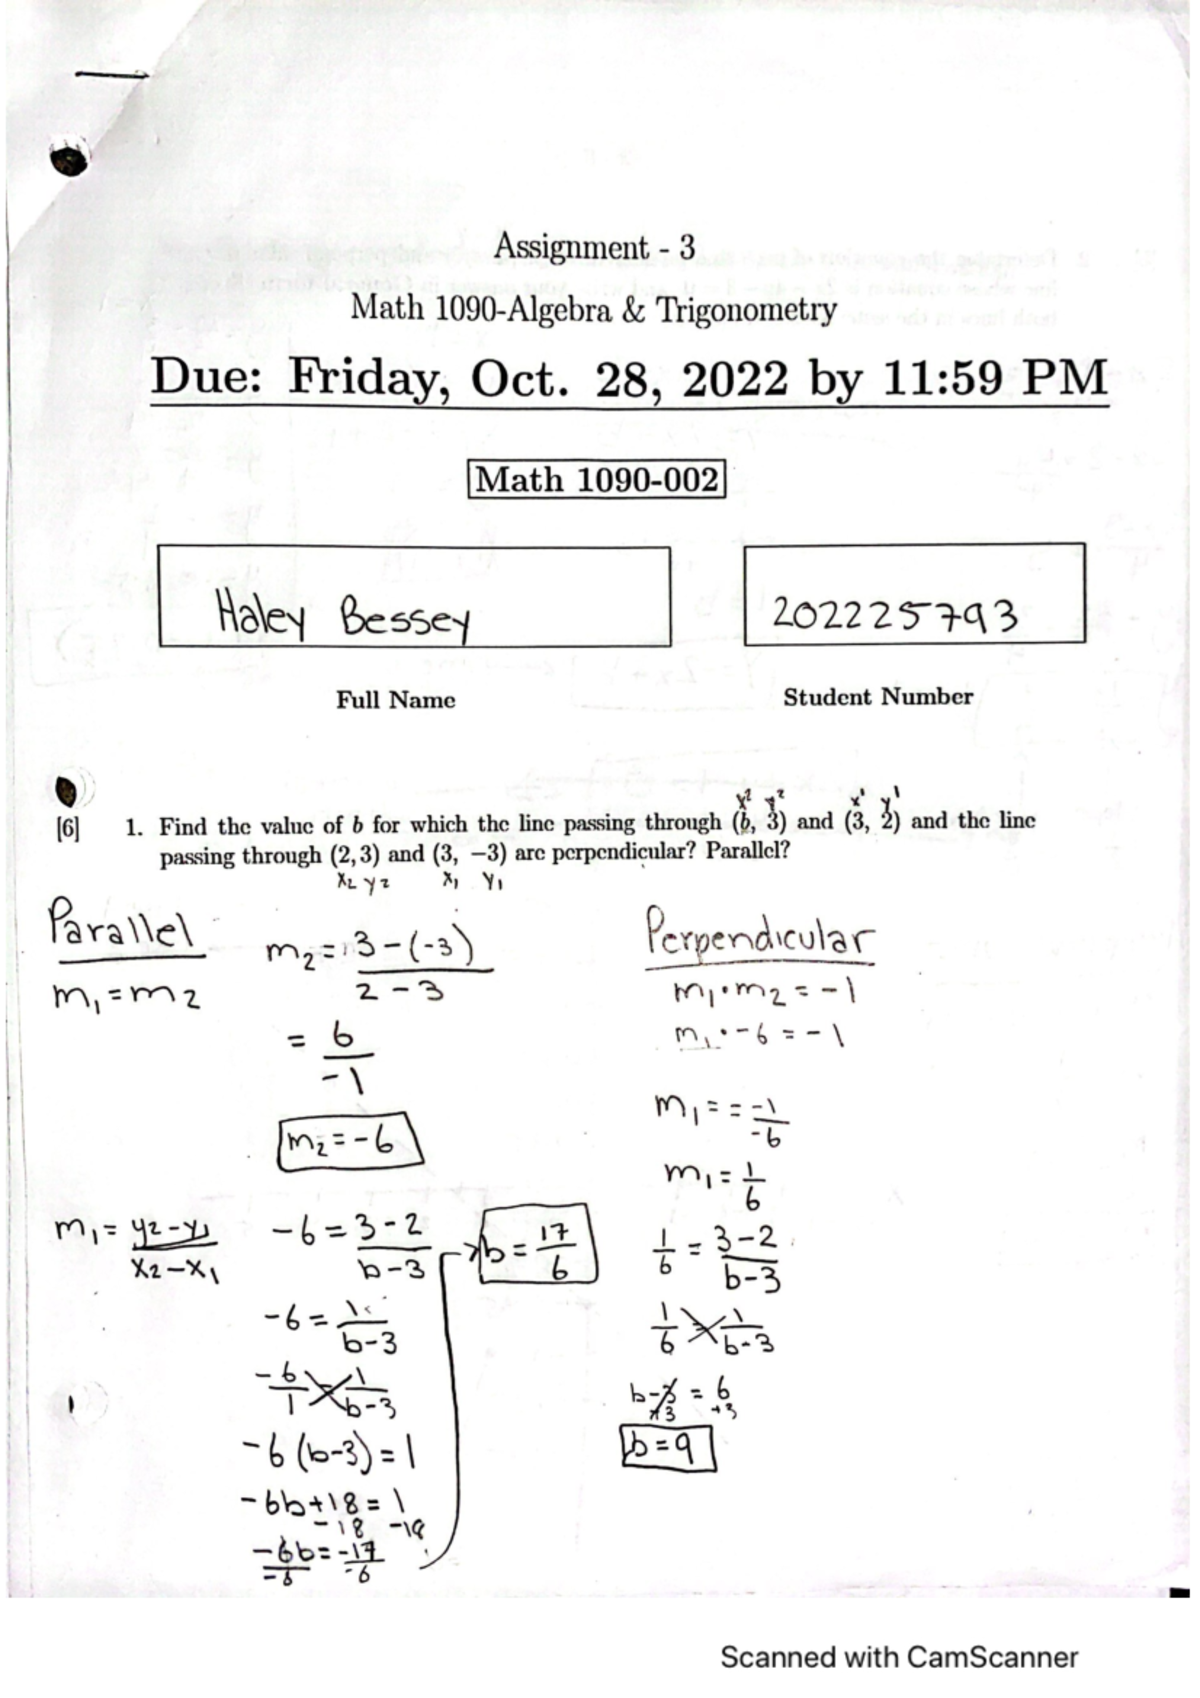 Assignment - 3
Math 1090-Algebra & Trigonometry
Due: Friday, Oct. 28, 2022 by 11:59 PM
Math 1090-002
Haley Bessey
202225793
Full Name
Student Number
x² y² x¹ y¹
[6] 1. Find the value of b for which the line passing through (b, 3) and (3, 2) and the line
passing through (2, 3) and (3, −3) are perpendicular? Parallel?
x₂ y₂ x₁ y₁
Parallel
m₁ = m₂
m₂ = 3 - (-3)
2 - 3
= 6
-1
m₂ = -6
m₁ = y₂ - y₁
x₂ - x₁
-6 = 3 - 2
b - 3
-6 = 1
b - 3
-6 1
1 b - 3
-6 (b-3) = 1
-6b + 18 = 1
-18 -18
-6b = -17
-6 -6
b = 17
6
Perpendicular
m₁ • m₂ = -1
m₁ • -6 = -1
m₁ = = -1
-6
m₁ = 1
6
1 = 3 - 2
6 b - 3
1 1
6 b - 3
b - 3 = 6
+3 +3
b = 9
Scanned with CamScanner